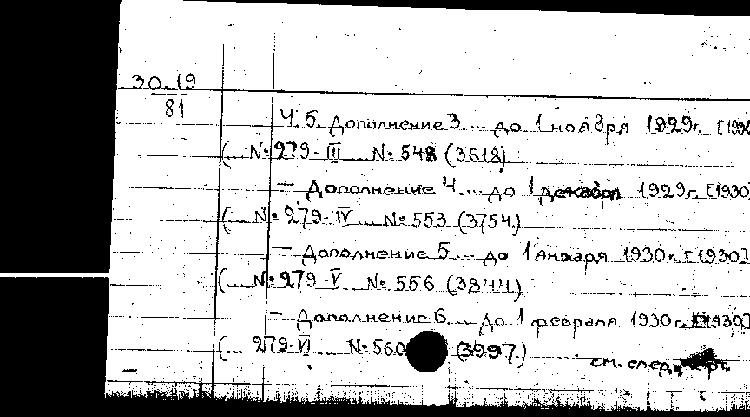 30.19
81
Ч. 5. Дополнение 3 ... до 1 ноября 1929г. [1930
(... №279-III ... №548 (3618)
— Дополнение 4 ... до 1 декабря 1929г. [1930
(... №279-IV ... №553 (3754)
— Дополнение 5 ... до 1 января 1930г. [1930]
(... №279-V ... №556 (3844)
— Дополнение 6 ... до 1 февраля 1930г. [1930]
(... 279-VI ... №560 (3997)
см. след.